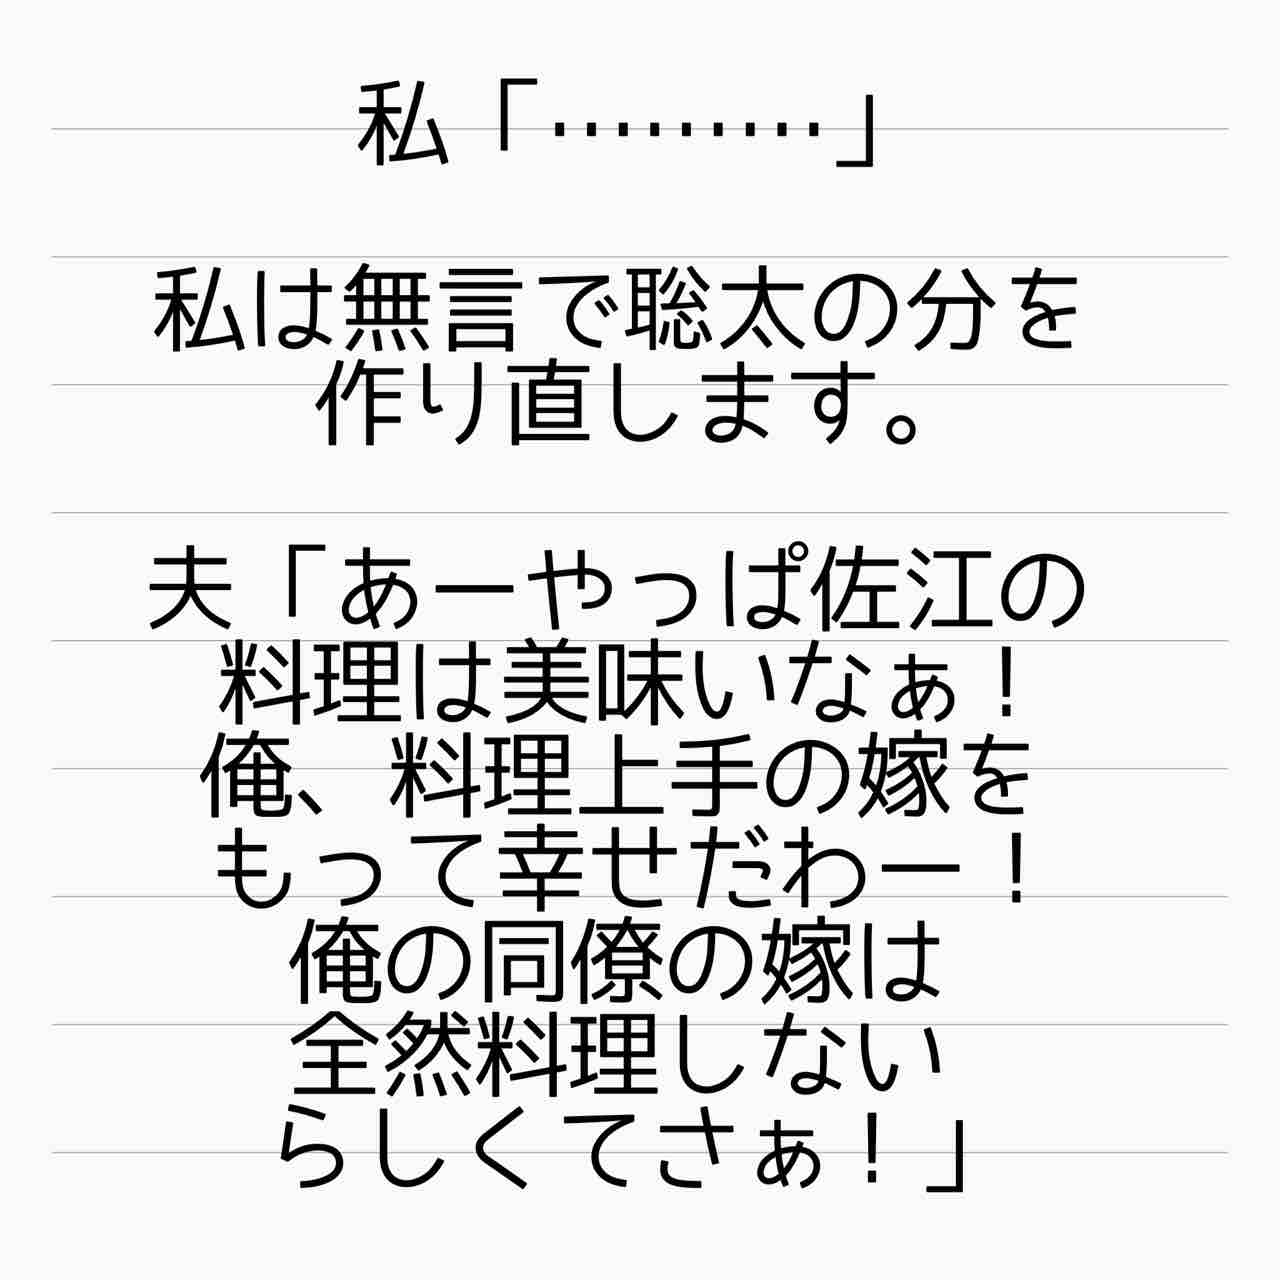 私「………」
私は無言で聡太の分を
作り直します。
夫「あーやっぱ佐江の
料理は美味いなぁ！
俺、料理上手の嫁を
もって幸せだわー！
俺の同僚の嫁は
全然料理しない
らしくてさぁ！」